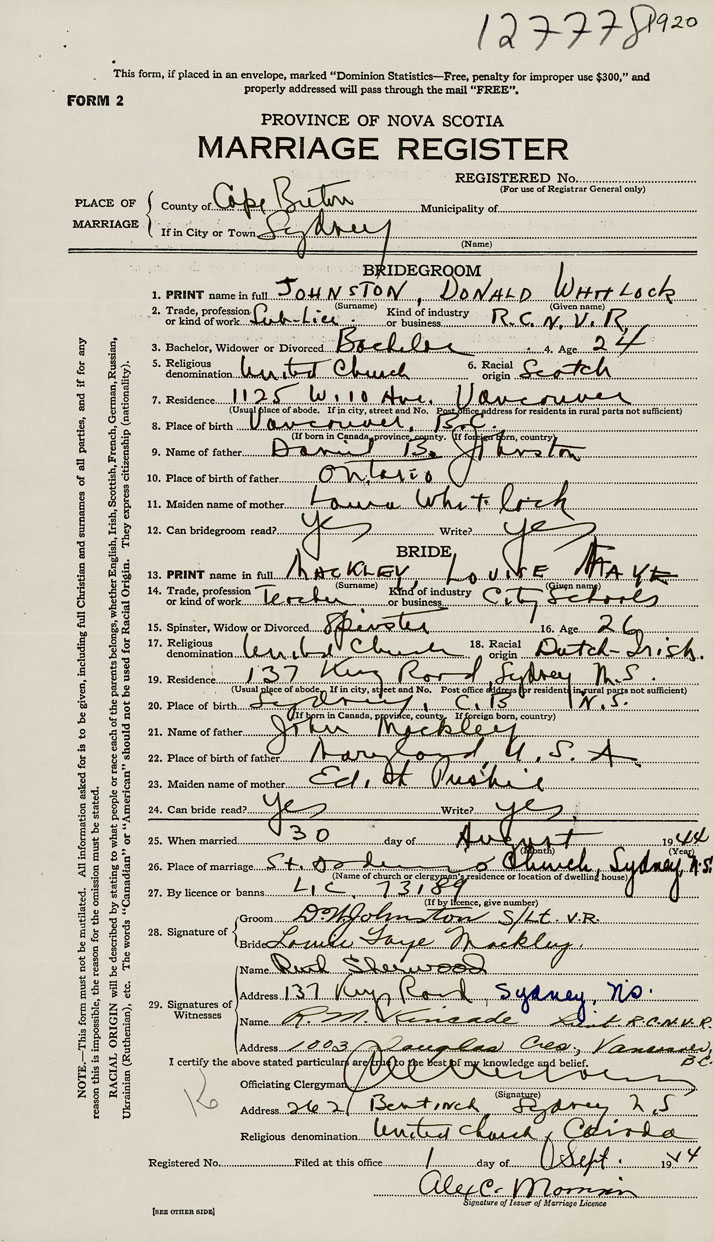 127778 1920
This form, if placed in an envelope, marked "Dominion Statistics—Free, penalty for improper use $300," and
properly addressed will pass through the mail "FREE".
FORM 2
PROVINCE OF NOVA SCOTIA
MARRIAGE REGISTER
REGISTERED No.
(For use of Registrar General only)
PLACE OF MARRIAGE
County of Cape Breton Municipality of
If in City or Town Sydney
(Name)
BRIDEGROOM
1. PRINT name in full JOHNSTON, DONALD WHITLOCK
(Surname) (Given name)
2. Trade, profession or kind of work Sub-Lieu. Kind of industry or business R.C.N.V.R.
3. Bachelor, Widower or Divorced Bachelor 4. Age 24
5. Religious denomination United Church 6. Racial origin Scotch
7. Residence 1125 W. 10 Ave. Vancouver
(Usual place of abode. If in city, street and No. Post office address for residents in rural parts not sufficient)
8. Place of birth Vancouver, B.C.
(If born in Canada, province, county. If foreign born, country)
9. Name of father B. Johnston
10. Place of birth of father Ontario
11. Maiden name of mother Laura Whitlock
12. Can bridegroom read? Yes Write? yes
BRIDE
13. PRINT name in full MACKLEY, LOUISE FAYE
(Surname) (Given name)
14. Trade, profession or kind of work Teacher Kind of industry or business City Schools
15. Spinster, Widow or Divorced Spinster 16. Age 26
17. Religious denomination United Church 18. Racial origin Dutch-Irish.
19. Residence 137 Kings Road, Sydney N.S.
(Usual place of abode. If in city, street and No. Post office address for residents in rural parts not sufficient)
20. Place of birth Sydney, C.B. N.S.
(If born in Canada, province, county. If foreign born, country)
21. Name of father John Mackley
22. Place of birth of father Maryland U.S.A
23. Maiden name of mother
24. Can bride read? Yes Write? yes.
25. When married 30 day of August 1944
(Month) (Year)
26. Place of marriage St. Church, Sydney, N.S.
(Name of church or clergyman's residence or location of dwelling house)
27. By licence or banns LIC. 73189
(If by licence, give number)
28. Signature of
Groom D.W. Johnston S/Lt. V.R.
Bride Louise Faye Mackley.
29. Signatures of Witnesses
Name Sherwood
Address 137 Kings Road, Sydney, N.S.
Name R. M. Kincade Lieut R.C.N.V.R.
Address 1003 Douglas Cres., Vancouver, B.C.
I certify the above stated particulars are true to the best of my knowledge and belief.
Officiating Clergyman
(Signature)
Address 262 Bentinck Sydney N.S
Religious denomination United Church, Canada
Registered No. Filed at this office 1 day of Sept. 1944
Alex C.
Signature of Issuer of Marriage Licence
[SEE OTHER SIDE]
NOTE.—This form must not be mutilated. All information asked for is to be given, including full Christian and surnames of all parties, and if for any
reason this is impossible, the reason for the omission must be stated.
RACIAL ORIGIN will be described by stating to what people or race each of the parents belongs, whether English, Irish, Scottish, French, German, Russian,
Ukrainian (Ruthenian), etc. The words "Canadian" or "American" should not be used for Racial Origin. They express citizenship (nationality).